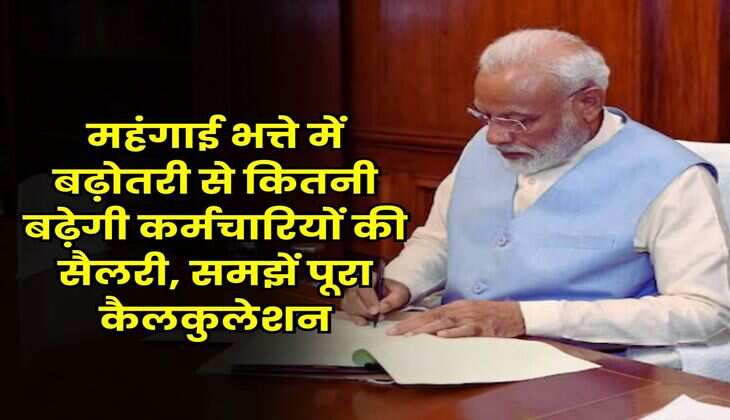 महंगाई भत्ते में
बढ़ोतरी से कितनी
बढ़ेगी कर्मचारियों की
सैलरी, समझें पूरा
कैलकुलेशन